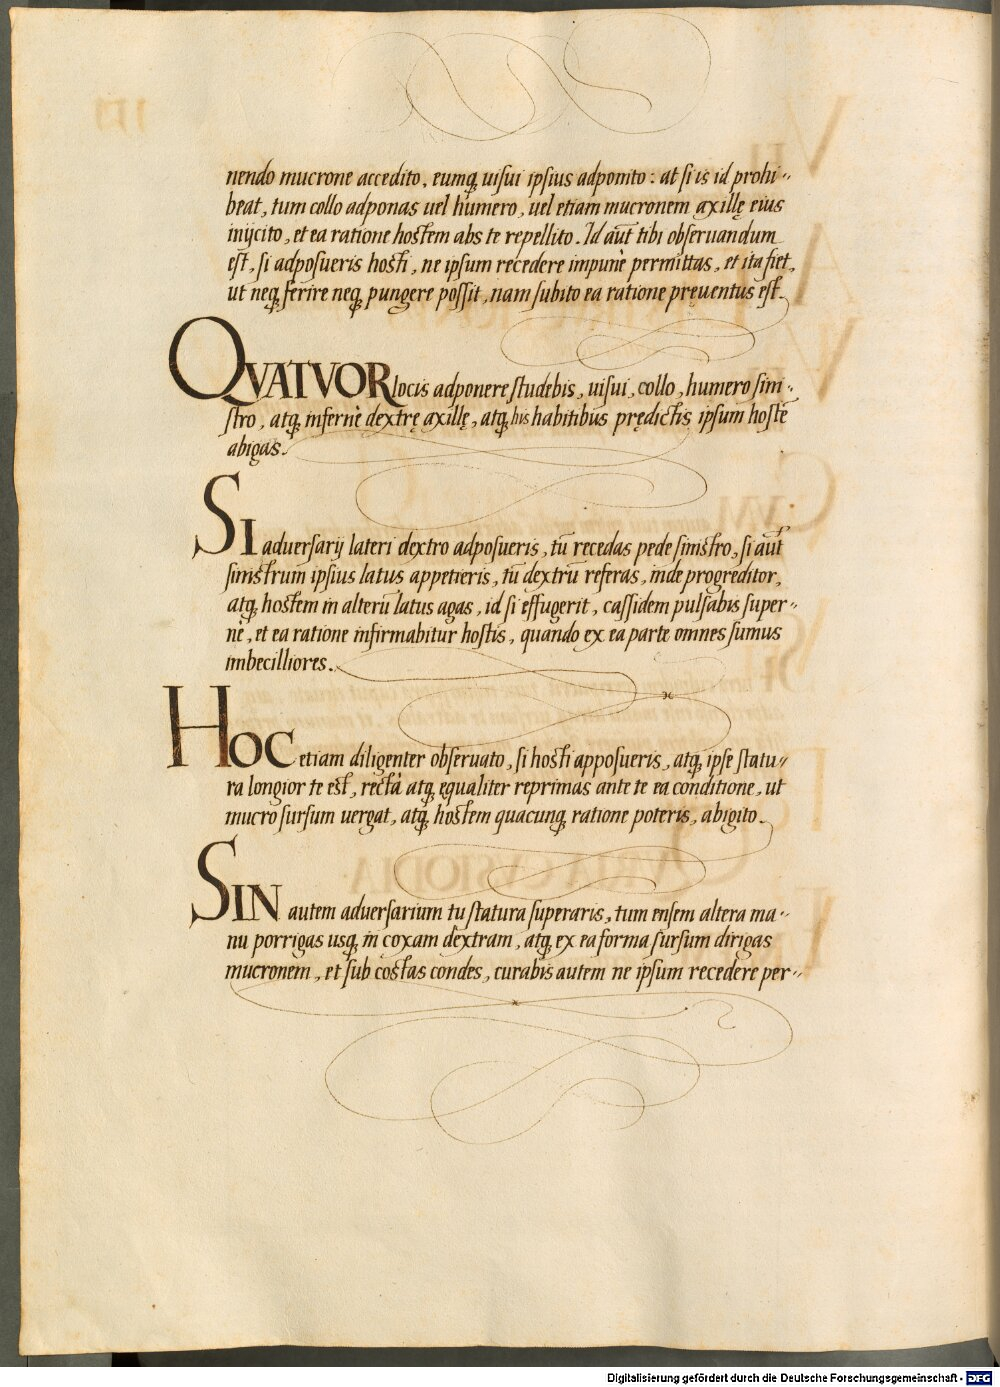 nendo mucrone accedito, eumq́ uisui ipsius adponito: at si is id prohi-
beat, tum collo adponas uel humero, uel etiam mucronem axillę eius
inijcito, et ea ratione hostem abs te repellito. Id aūt tibi obseruandum
est, si adposueris hosti, ne ipsum recedere impunè permittas, et ita fiet,
ut neq́ ferire neq́ pungere possit, nam subito ea ratione pręuentus est.
QVATVOR locis adponere studebis, uisui, collo, humero sini-
stro, atq́ infernè dextrę axillę, atq́ his habitibus prędictis ipsum hostē
abigas.
SI aduersarij lateri dextro adposueris, tū recedas pede sinistro, si aūt
sinistrum ipsius latus appetieris, tū dextrū referas, inde progreditor,
atq́ hostem in alterū latus agas, id si effugerit, cassidem pulsabis super-
nè, et ea ratione infirmabitur hostis, quando ex ea parte omnes sumus
imbecilliores.
HOC etiam diligenter obseruato, si hosti apposueris, atq́ ipse statu-
ra longior te est, rectà atq́ ęqualiter reprimas ante te ea conditione, ut
mucro sursum uergat, atq́ hostem quacunq́ ratione poteris, abigito.
SIN autem aduersarium tu statura superaris, tum ensem altera ma-
nu porrigas usq́ in coxam dextram, atq́ ex ea forma sursum dirigas
mucronem, et sub costas condes, curabis autem ne ipsum recedere per-
Digitalisierung gefördert durch die Deutsche Forschungsgemeinschaft - DFG